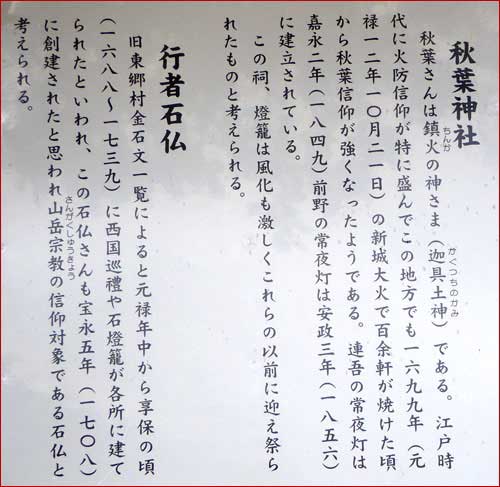 秋葉神社
秋葉さんは鎮火の神さま（迦具土神）である。江戸時
ちんか
かぐつちのかみ
代に火防信仰が特に盛んでこの地方でも一六九九年（元
禄一二年一〇月二一日）の新城大火で百余軒が焼けた頃
から秋葉信仰が強くなったようである。連吾の常夜灯は
嘉永二年（一八四九）前野の常夜灯は安政三年（一八五六）
に建立されている。
この祠、燈籠は風化も激しくこれらの以前に迎え祭ら
れたものと考えられる。
行者石仏
旧東郷村金石文一覧によると元禄年中から享保の頃
（一六八八〜一七三九）に西国巡禮や石燈籠が各所に建て
られたといわれ、この石仏さんも宝永五年（一七〇八）
に創建されたと思われ山岳宗教の信仰対象である石仏と
さんがくしゅうきょう
考えられる。